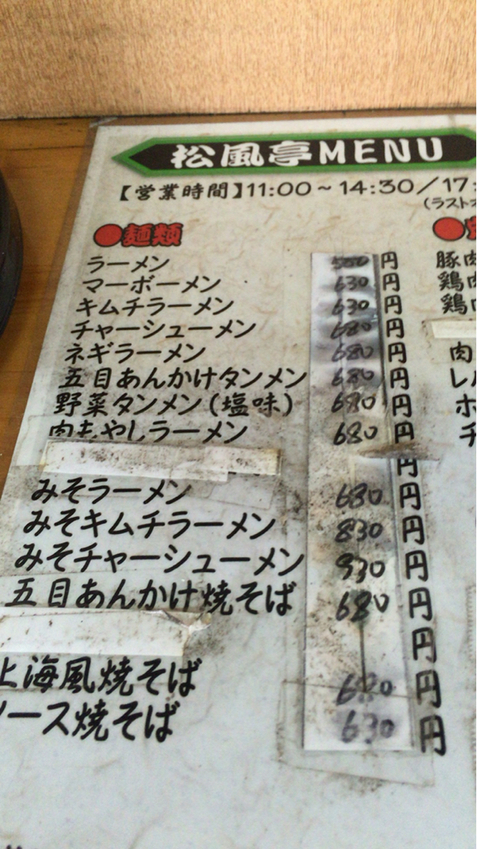 松風亭MENU
【営業時間】11:00～14:30／17:
(ラストオ
●麺類
ラーメン 円
マーボーメン 630円
キムチラーメン 630円
チャーシューメン 680円
ネギラーメン 680円
五目あんかけタンメン 680円
野菜タンメン(塩味) 680円
肉もやしラーメン 680円
円
みそラーメン 680円
みそキムチラーメン 830円
みそチャーシューメン 930円
五目あんかけ焼そば 680円
円
上海風焼そば 680円
ソース焼そば 630円
豚肉
鶏肉
鶏肉
肉
レ
ホ
チ